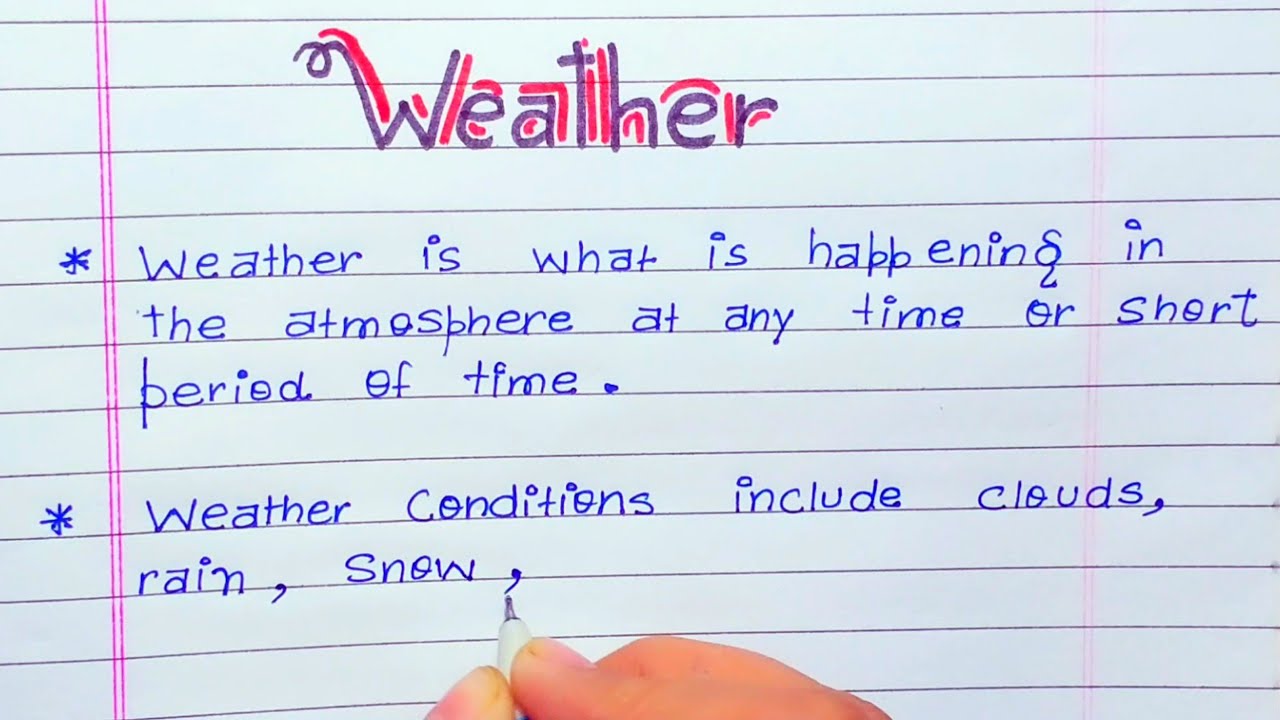 Weather
* Weather is what is happening in
the atmosphere at any time or short
period of time.
* Weather Conditions include clouds,
rain, snow,